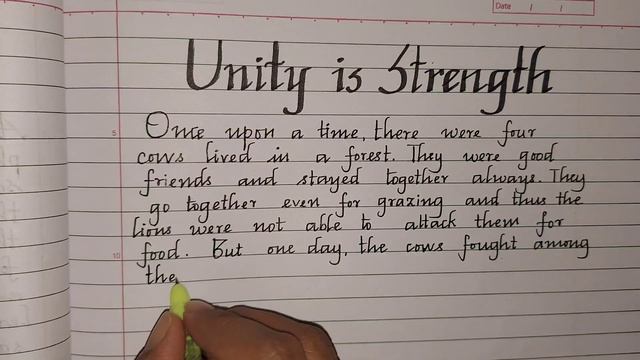 Date / /
Unity is Strength
5
Once upon a time, there were four
cows lived in a forest. They were good
friends and stayed together always. They
go together even for grazing and thus the
lions were not able to attack them for
10
food. But one day, the cows fought among
the